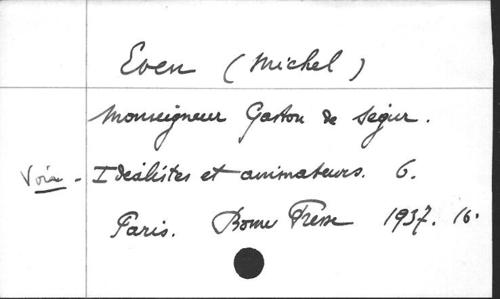 Even (Michel)
Monseigneur Gaston de Ségur.
Voir - Idéalistes et animateurs. 6.
Paris. Bonne Presse 1937. 16.